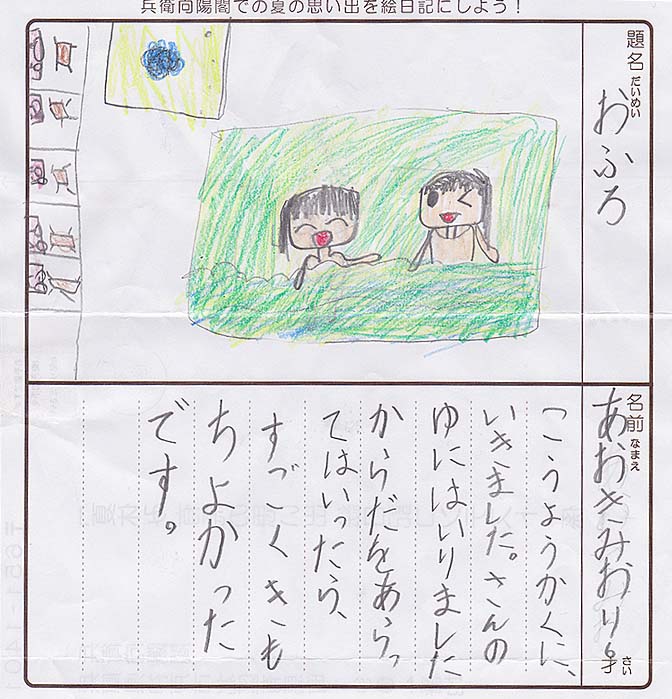 兵衛向陽閣での夏の思い出を絵日記にしよう！
題名 だいめい
おふろ
名前 なまえ
あおきみおり
才 さい
こうようかくに、
いきました。さんの
ゆにはいりました
からだをあらっ
てはいったら、
すごくきも
ちよかった
です。